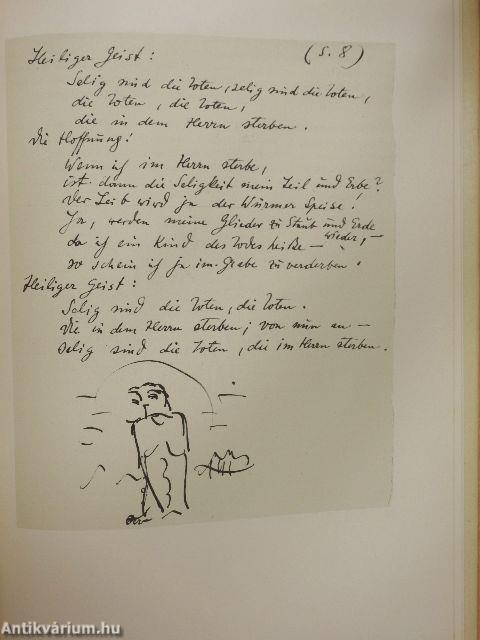 Heiliger Geist: (S. 8)
Selig sind die Toten, selig sind die Toten,
die Toten, die Toten,
die in dem Herrn sterben.
Die Hoffnung:
Wenn ich im Herrn sterbe,
ist dann die Seligkeit mein Teil und Erbe?
Der Leib wird ja der Würmer Speise!
Ja, werden meine Glieder zu Staub und Erde
wieder, –
da ich ein Kind des Todes heiße –
so schein ich ja im Grabe zu verderben.
Heiliger Geist:
Selig sind die Toten, die Toten.
Die in dem Herrn sterben; von nun an –
Selig sind die Toten, die im Herrn sterben.
Antikvárium.hu